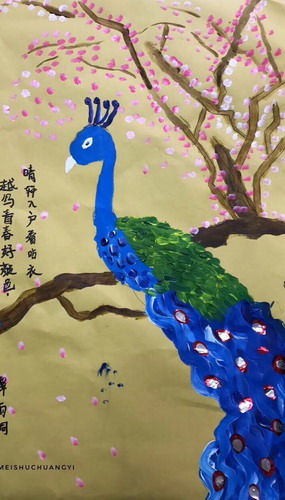 越鸟青春好颜色
晴 入户看 衣
雨同
MEISHUCHUANGYI